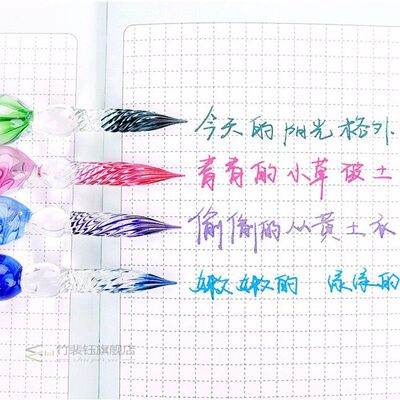 今天的阳光格外
青青的小草破土
偷偷的从黄土衣
嫩嫩的 绿绿的
竹裴钰旗舰店